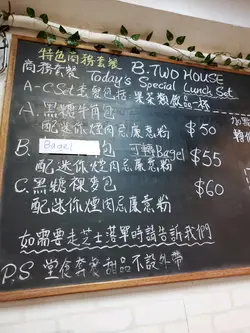 特色商務套餐
商務套餐 B.TWO HOUSE
Today's Special Lunch Set
A-C Set 套餐包括:果茶類飲品一杯
A. 黑糖牛角包
配迷你煙肉忌廉意粉 $50
B. Bagel 包 可轉Bagel
配迷你煙肉忌廉意粉 $55
C. 黑糖裸麥包
配迷你煙肉忌廉意粉 $60
如需要走芝士落單時請告訴我們
P.S 堂食套餐甜品不設外帶